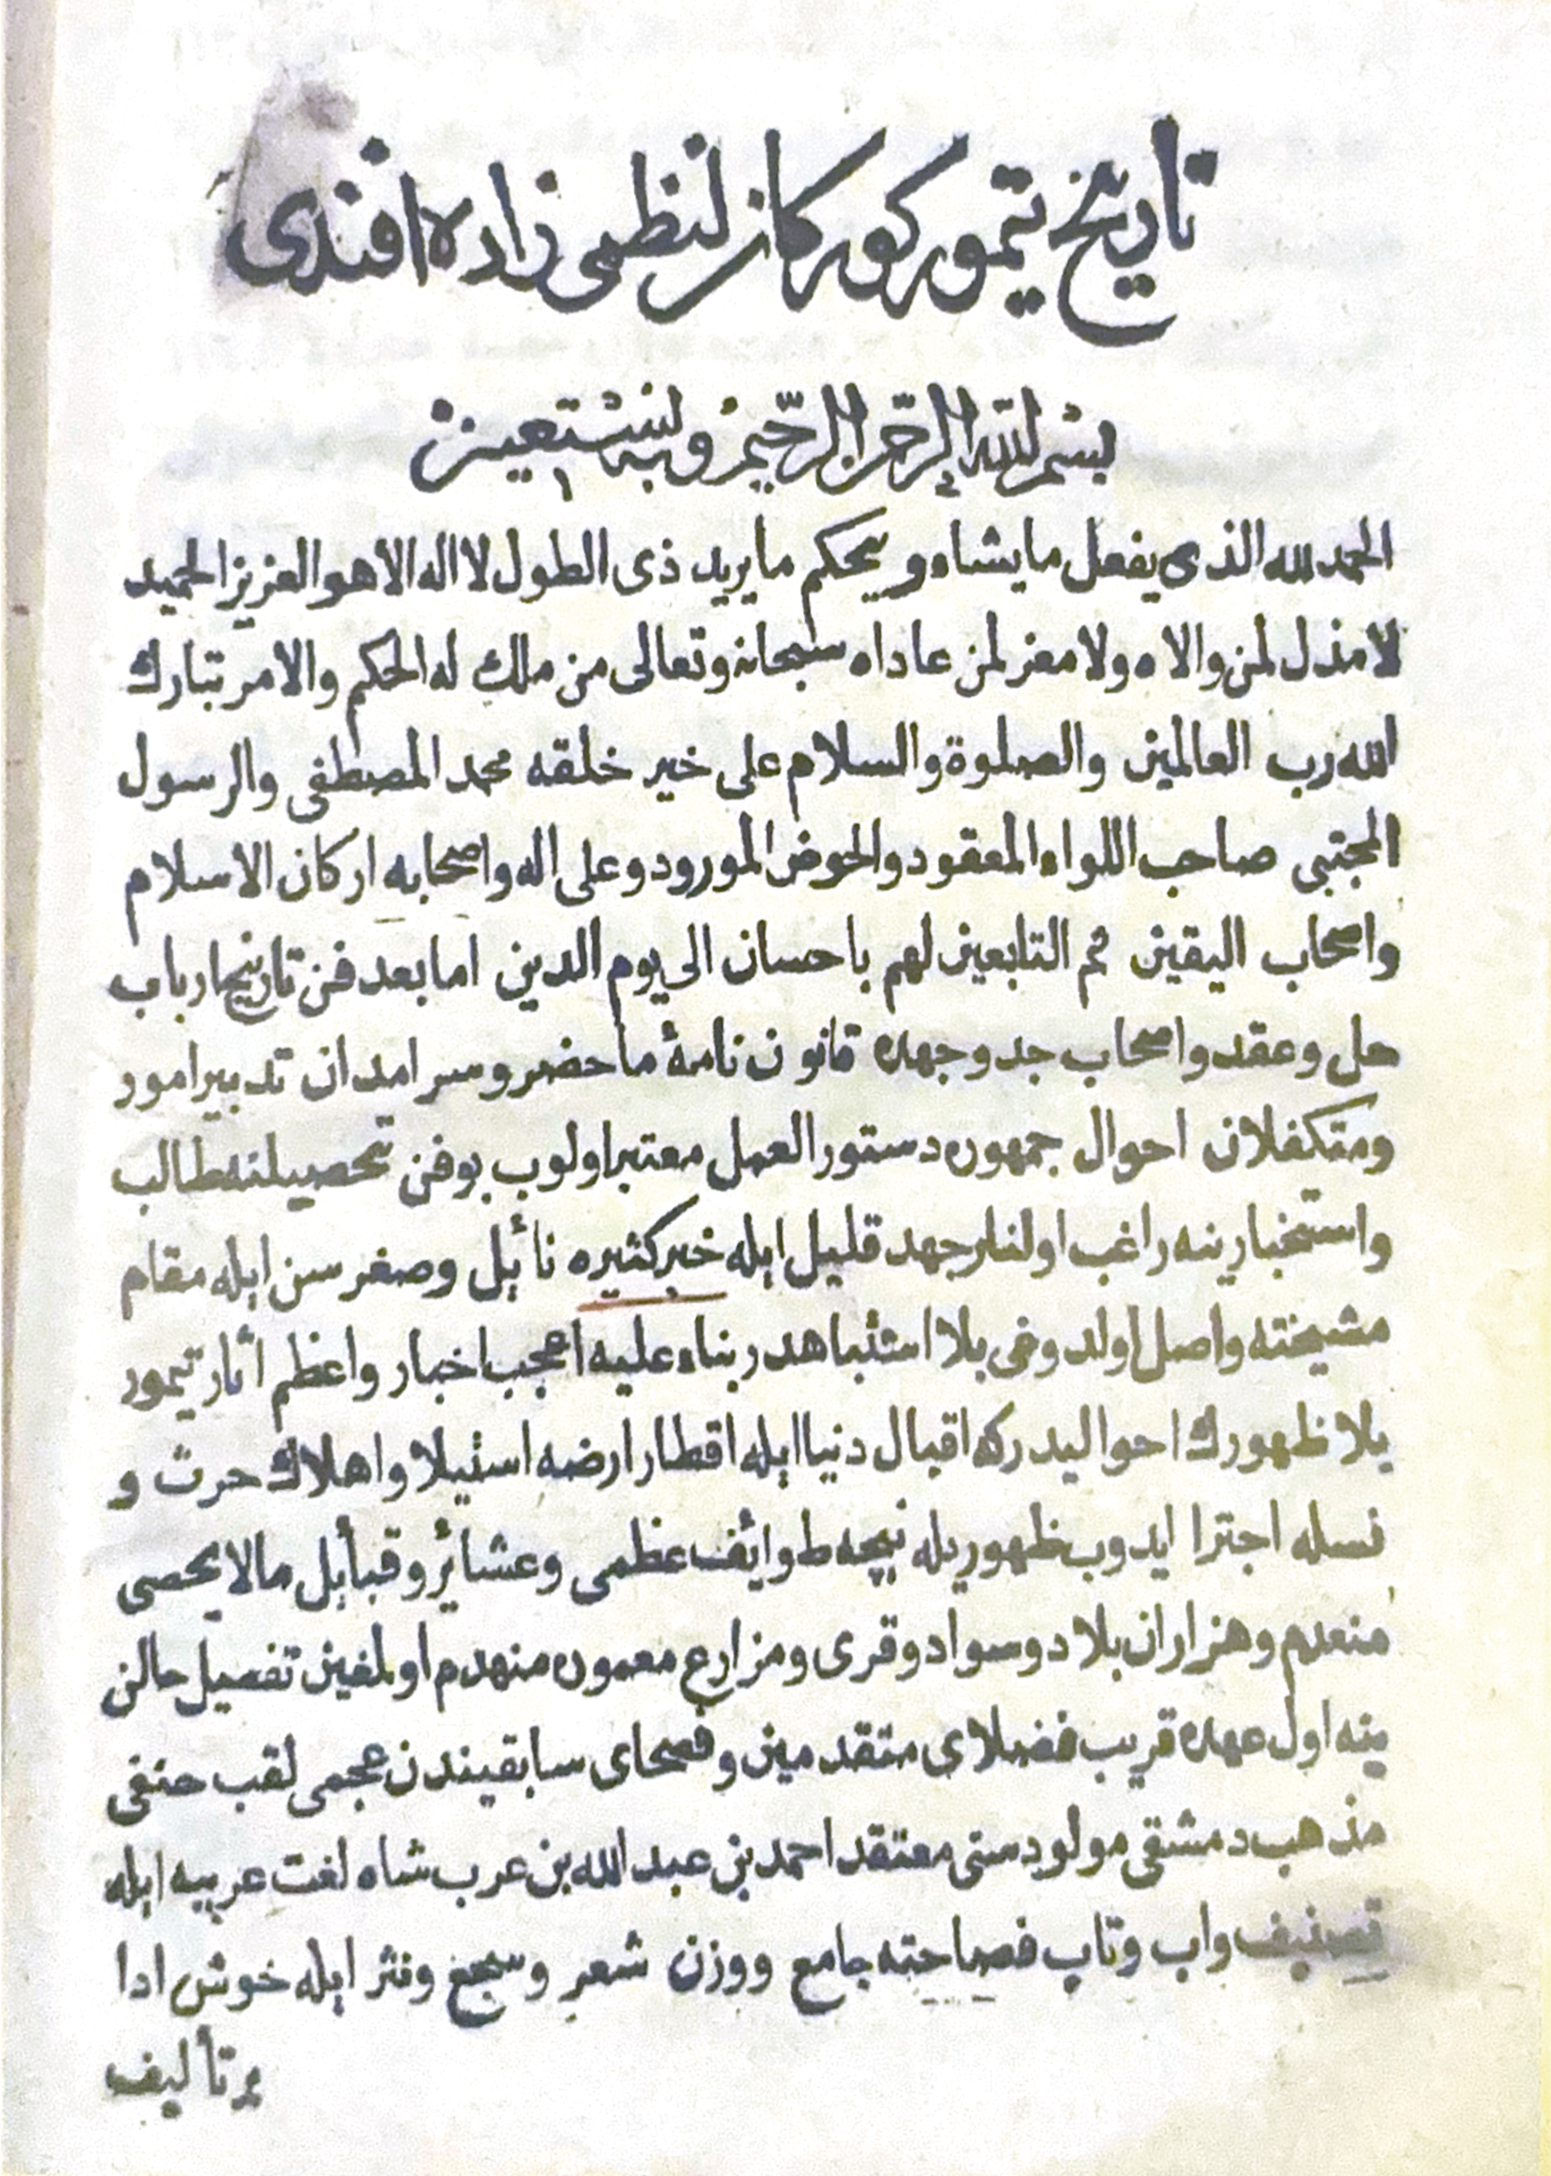 تاريخ تيمور كوركان لنظمى زاده افندى
بسم الله الرحمن الرحيم وبه نستعين
الحمد لله الذى يفعل ما يشاء ويحكم ما يريد ذى الطول لا اله الا هو العزيز الحميد
لا مذل لمن والاه ولا معز لمن عاداه سبحانه وتعالى من ملك له الحكم والامر تبارك
الله رب العالمين والصلوة والسلام على خير خلقه محمد المصطفى والرسول
المجتبى صاحب اللواء المعقود والحوض المورود وعلى اله واصحابه اركان الاسلام
واصحاب اليقين ثم التابعين لهم باحسان الى يوم الدين اما بعد فن تاريخ ارباب
حل وعقد واصحاب جد وجهده قانون نامۀ ما حضر وسرامدان تدبير امور
ومتكفلان احوال جمهوره دستور العمل معتبر اولوب بو فن تحصيلنه طالب
واستخبارينه راغب اولنلر جهد قليل ايله خبر كثيره نائل وصغر سن ايله مقام
مشيخته واصل اولدوغى بلا اشتباهدر بناء عليه اعجب اخبار واعظم اثار تيمور
بلا ظهورك احواليدركه اقبال دنيا ايله اقطار ارضه استيلا واهلاك حرث و
نسله اجترا ايدوب ظهوريله نيچه طوائف عظمى وعشائر وقبائل مالا يحصى
منعدم وهزاران بلاد وسواد وقرى ومزارع معموره منهدم اولمغين تفصيل حالن
ينه اول عهده قريب فضلاى متقدمين وفصحاى سابقيندن عجمى لقب حنفى
مذهب دمشقى مولود سنى معتقد احمد بن عبد الله بن عرب شاه لغت عربيه ايله
تصنيف واب وتاب فصاحته جامع ووزن شعر وسجع ونثر ايله خوش ادا
بر تأليف